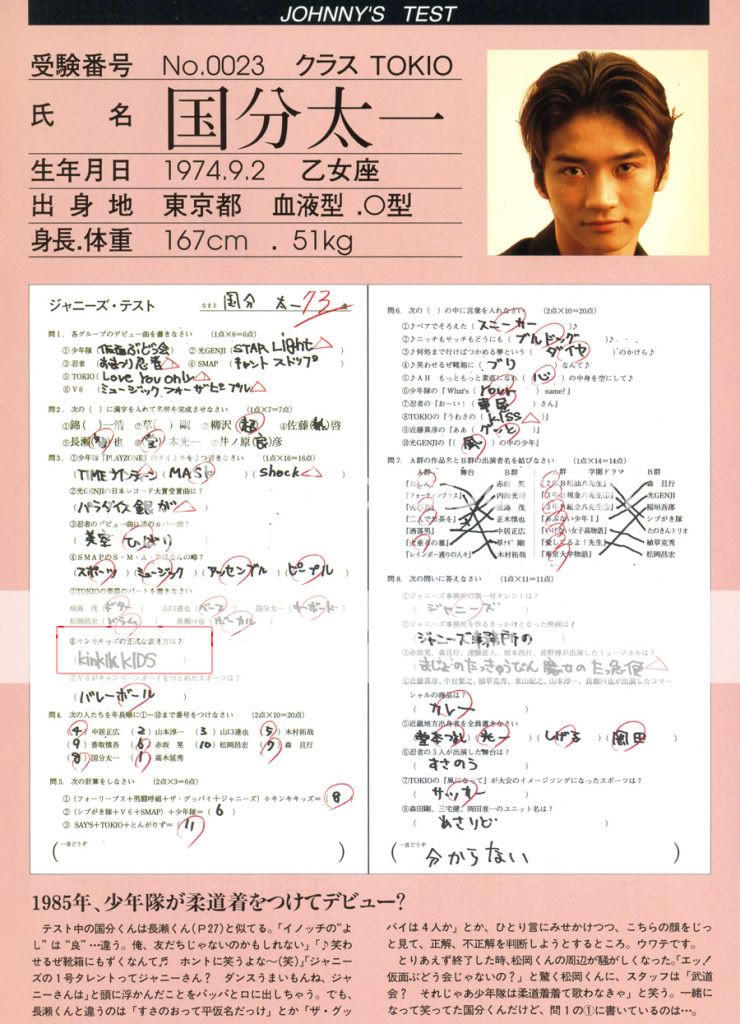 JOHNNY'S TEST
受験番号 No.0023 クラス TOKIO
氏名 国分太一
生年月日 1974.9.2 乙女座
出身地 東京都 血液型 .O型
身長.体重 167cm . 51kg
ジャニーズ・テスト なまえ 国分 太一 73点
問1. 各グループのデビュー曲を書きなさい (1点×6=6点)
①少年隊(仮面ぶどう会) ②光GENJI(STAR Light)
③忍者(おまつり忍者) ④SMAP(
⑤TOKIO(Love You only)
⑥V6(ミュージックフォーザピープル)
問2. 次の( )に漢字を入れて名前を完成させなさい (1点×7=7点)
問3. ①少年隊「PLAYZONE」のタイトルを3つ書きなさい (1点×16=16点)
(MASK) (Shock)
②光GENJIの日本レコード大賞受賞曲は?
(パラダイス銀が)
③忍者のデビュー曲は誰のカバー曲?
(美空ひばり)
④SMAPのS・M・A・Pはなんの略?
(スポーツ)(ミュージック)(アッセンブル)(ピープル)
⑤TOKIOの楽器のパートを書きなさい
城島 茂(ギター) 山口達也(ベース) 国分太一(キーボード)
松岡昌宏(ドラム) 長瀬智也(ボーカル)
⑥キンキキッズの正式な書き方は?
(kinkikKIDS)
⑦V6がキャンペーンボーイをつとめたスポーツは?
(バレーボール)
問4. 次の人たちを年長順に①〜⑩まで番号をつけなさい (2点×10=20点)
(4)中居正広 (2)山本淳一 (3)山口達也 (5)木村拓哉
(9)香取慎吾 (6)赤坂 晃 (10)松岡昌宏 (7)森 且行
(8)国分太一 (1)高木延秀
問5. 次の計算をしなさい (2点×3=6点)
①(フォーリーブス+男闘呼組+ザ・グッバイ+ジャニーズ)÷キンキキッズ=(8)
②(シブがき隊+V6+SMAP)÷少年隊=(6)
③ SAY'S+TOKIO+とんがりず=(11)
一言どうぞ
問6. 次の( )の中に言葉を入れなさい (2点×10=20点)
①♪ペアでそろえた(スニーカー)♪
②♪ニッチもサッチもどうにも(ブルドッグ)♪
③♪何処まで行けばつかめる夢という(ダイヤ)のかけら♪
④♪笑わせるぜ靴箱に(ブリ)なんて♪
⑤♪AH もっともっと素直になれ(心)の中身を空にして♪
⑥少年隊の「What's(Your)name?」
⑦忍者の「おーい!(車屋)さん」
⑧TOKIOの「うわさの(kiss)」
⑨近藤真彦の「ああ(グッと)」
⑩光GENJIの「(風)の中の少年」
問7. A群の作品名とB群の出演者名を結びなさい (1点×14=14点)
A群 舞台 B群 A群 学園ドラマ B群
赤坂 晃 森 且行
『フォーティンブラス』 内海光司 光GENJI
城島 茂 稲垣吾郎
『二人でお茶を』 正木慎也 『あぶない少年Ⅰ』 シブがき隊
『洒落男』 中居正広 『いけない女子高物語』 たのきんトリオ
草彅 剛 『愛してるよ!先生』 植草克秀
『レインボー通りの人々』 木村拓哉 『東京大学物語』 松岡昌宏
問8. 次の問いに答えなさい (1点×11=11点)
①ジャニーズ事務所の第一号タレントは?
(ジャニーズ)
②ジャニーズ事務所を作るきっかけとなった映画は?
(ジャニーズ事務所の
③赤坂晃、森且行、遠藤直人、坂本昌行、長野博が出演したミュージカルは?
(まじょのたっきゅうびん 魔女のたっ急便)
④近藤真彦、中村繁之、植草克秀、東山紀之、山本淳一、長瀬智也が出演したコマーシャルの商品は?
(カレー)
⑤近畿地方出身者を全員書きなさい
(堂本つよし 光一)(しげる)(岡田)
⑥忍者の3人が出演した舞台は?
(すさのう)
⑦TOKIOの『風になって』が大会のイメージソングになったスポーツは?
(サッカー)
⑧森田剛、三宅健、岡田准一のユニット名は?
一言どうぞ
分からない
1985年、少年隊が柔道着をつけてデビュー?
テスト中の国分くんは長瀬くん(P27)と似てる。「イノッチの"よ
し"は"良"…違う。俺、友だちじゃないのかもしれない」「♪笑わ
せるぜ靴箱にもずくなんて♬ ホントに笑うよな〜(笑)」「ジャニー
ズの1号タレントってジャニーさん? ダンスうまいもんね、ジャ
ニーさんは」と頭に浮かんだことをパッパと口に出しちゃう。でも、
長瀬くんと違うのは「すさのおって平仮名だっけ」とか「ザ・グッ
バイは4人か」とか、ひとり言にみせかけつつ、こちらの顔をじっ
と見て、正解、不正解を判断しようとするところ。ウワテです。
とりあえず終了した時、松岡くんの周辺が騒がしくなった。「エッ!
仮面ぶどう会じゃないの?」と驚く松岡くんに、スタッフは「武道
会? それじゃあ少年隊は柔道着着て歌わなきゃ」と笑う。一緒に
なって笑ってた国分くんだけど、問1の①に書いているのは…。